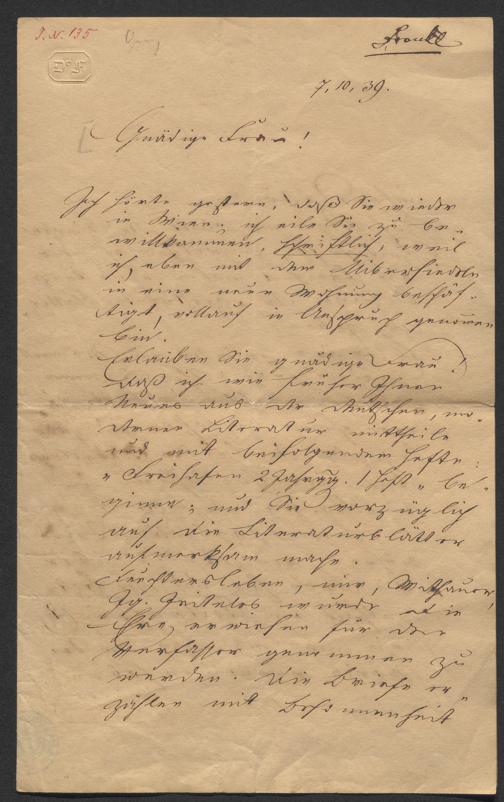 J. N. 135
Frankl
D F
7, 10, 39.
Gnädige Frau!
Ich hörte gestern, daß Sie wieder
in Wien; ich eile Sie zu be-
willkommen, schriftlich, weil
ich eben mit dem Übersiedeln
in eine neue Wohnung beschäf-
tigt, vollauf in Anspruch genommen
bin.
Erlauben Sie gnädige Frau!
daß ich wie früher Ihnen
Neues aus der deutschen, mo-
dernen Literatur mittheile
und mit beifolgendem Hefte:
"Freihafen 2 Jahrgg. 1 Heft" be-
ginne; und Sie vorzüglich
auf die Literaturblätter
aufmerksam mache.
Feuchtersleben, mir, Withauer,
Ig. Jeitelos wurde die
Ehre erwiesen für den
Verfasser genommen zu
werden. Die Briefe er-
zählen mit Besonnenheit